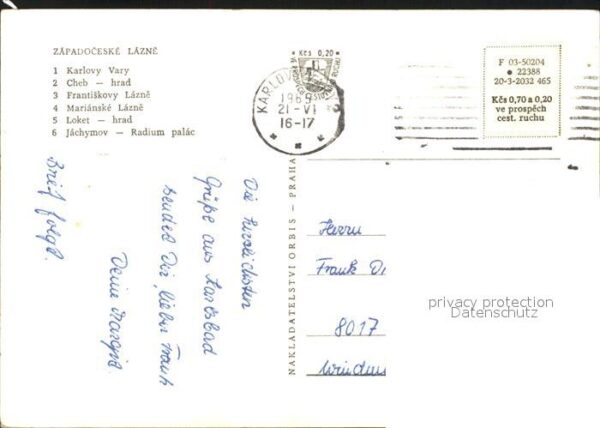 ZÁPADOČESKÉ LÁZNĚ
1 Karlovy Vary
2 Cheb — hrad
3 Františkovy Lázně
4 Mariánské Lázně
5 Loket — hrad
6 Jáchymov — Radium palác
Kčs 0,20
KARLOVY
1969
21-VI
16-17
F 03-50204
● 22388
20-3-2032 465
Kčs 0,70 a 0,20
ve prospěch
cest. ruchu
NAKLADATELSTVÍ ORBIS – PRAHA
Die herzlichsten
Grüße aus Karlsbad
sendet Dir, lieber Frank
Deine
Brief folgt.
Herrn
Frank
8017
privacy protection
Datenschutz